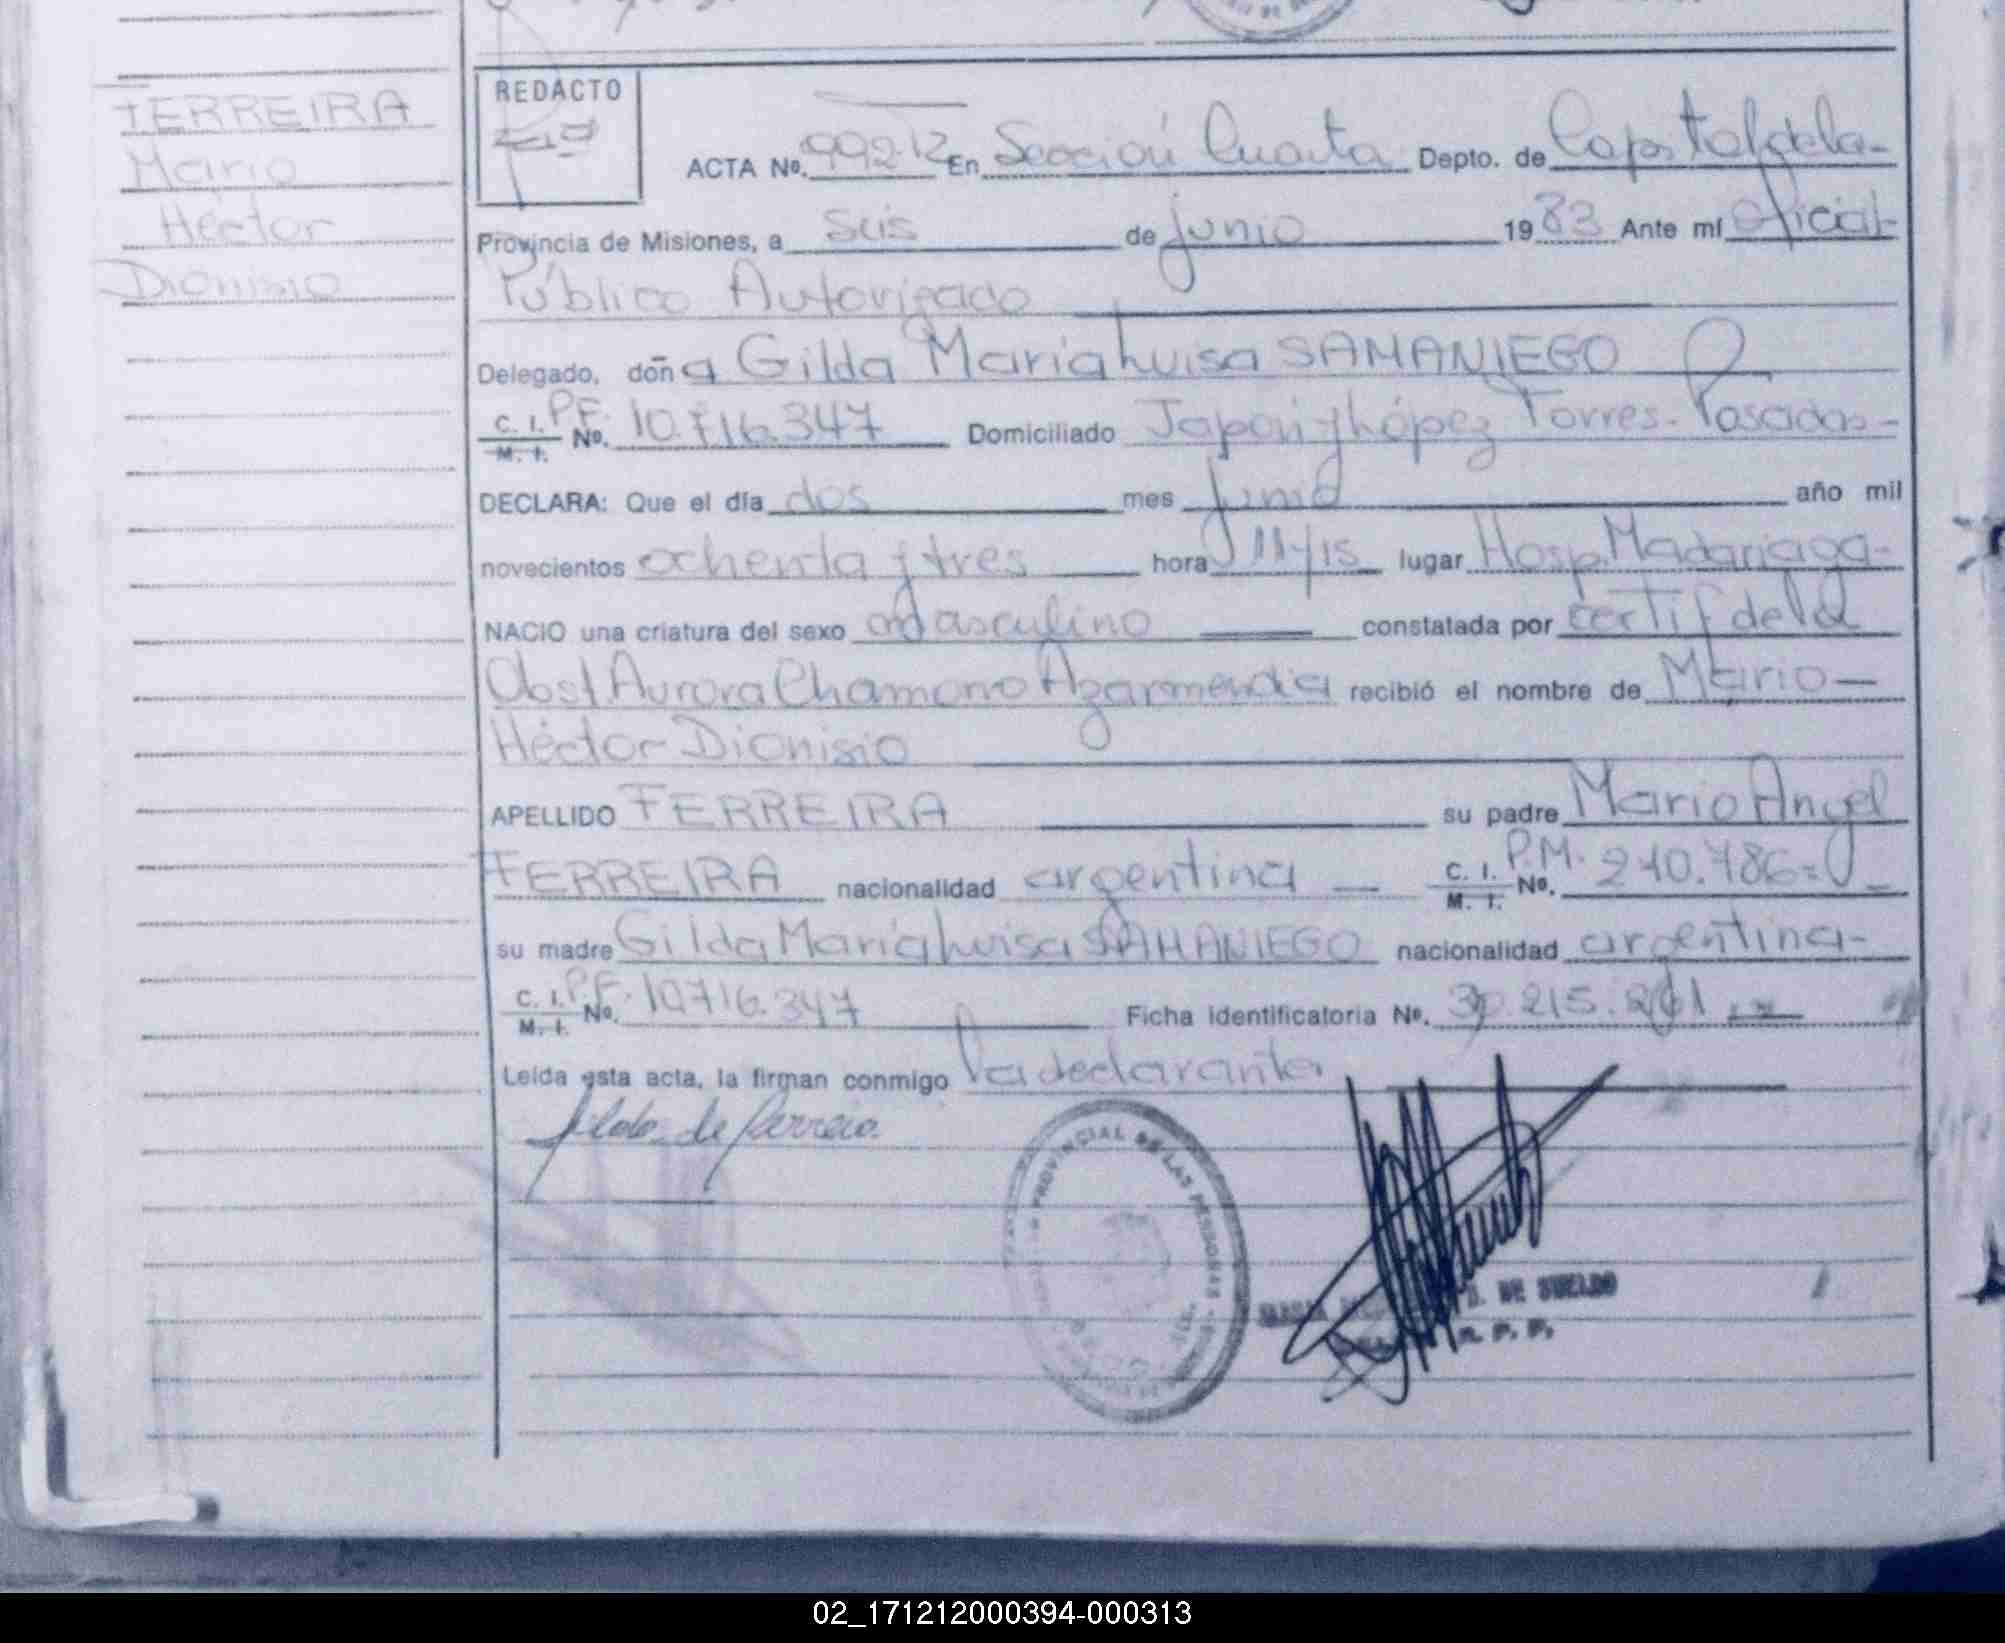 FERREIRA
Mario
Héctor
Dionisio
REDACTO
ACTA No. 992-12 En Sección Cuarta Depto. de Capital de la-
Provincia de Misiones, a seis de junio 1983 Ante mí Oficial
Público Autorizado
Delegado, doña Gilda María Luisa SAMANIEGO
C. I. P.F.
M. I. No. 10.716.347 Domiciliado Japón y López Torres-Posadas-
DECLARA: Que el día dos mes junio año mil
novecientos ochenta y tres hora 11 y 15 lugar Hosp. Madariaga-
NACIO una criatura del sexo masculino constatada por certif de la
Obst. Aurora Chamorro Azarmendia recibió el nombre de Mario-
Héctor Dionisio
APELLIDO FERREIRA su padre Mario Angel
FERREIRA nacionalidad argentina C. I. P.M.
M. I. No. 210.786=
su madre Gilda María Luisa SAMANIEGO nacionalidad argentina-
C. I. P.F.
M. I. No. 10716.347 Ficha identificatoria No. 30.215.261
Leída esta acta, la firman conmigo la declarante
Gilda de Ferreira
PROVINCIAL DE LAS PERSONAS
D. DE SUELDO
R. P. P.
02_171212000394-000313